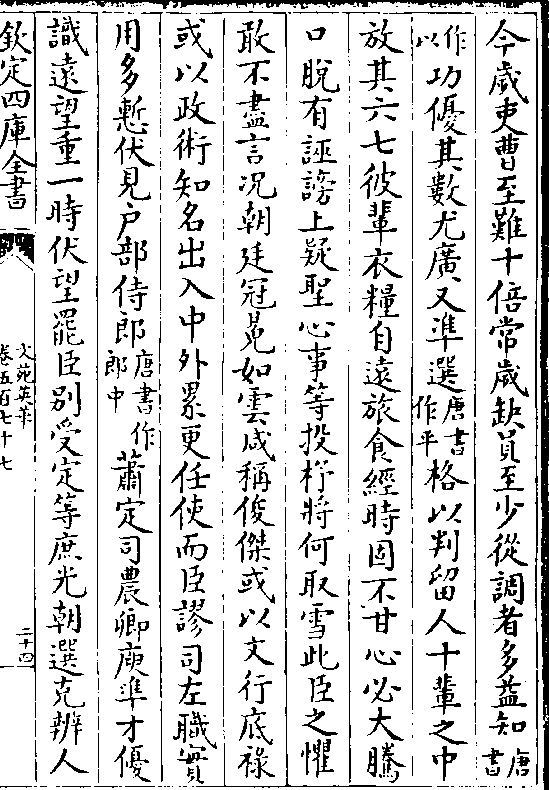 今歲吏曹至難十倍常歲缺員至少從調者多益知唐書
作以功優其數尤廣又準選唐書作平格以判留人十輩之中
放其六七彼輩衣糧自遠旅食經時固不甘心必大騰
口脫有誣謗上疑聖心事等投杼將何取雪此臣之懼
敢不盡言况朝廷冠冕如雲咸稱俊傑或以文行底祿
或以政術知名出入中外累更任使而臣謬司左職實
用多慙伏見户部侍郎唐書作郎中蕭定司農卿庾準才優
識遠望重一時伏望罷臣别受定等庶光朝選克辨人
欽定四庫全書
文苑英華
卷五百七十七
二十四